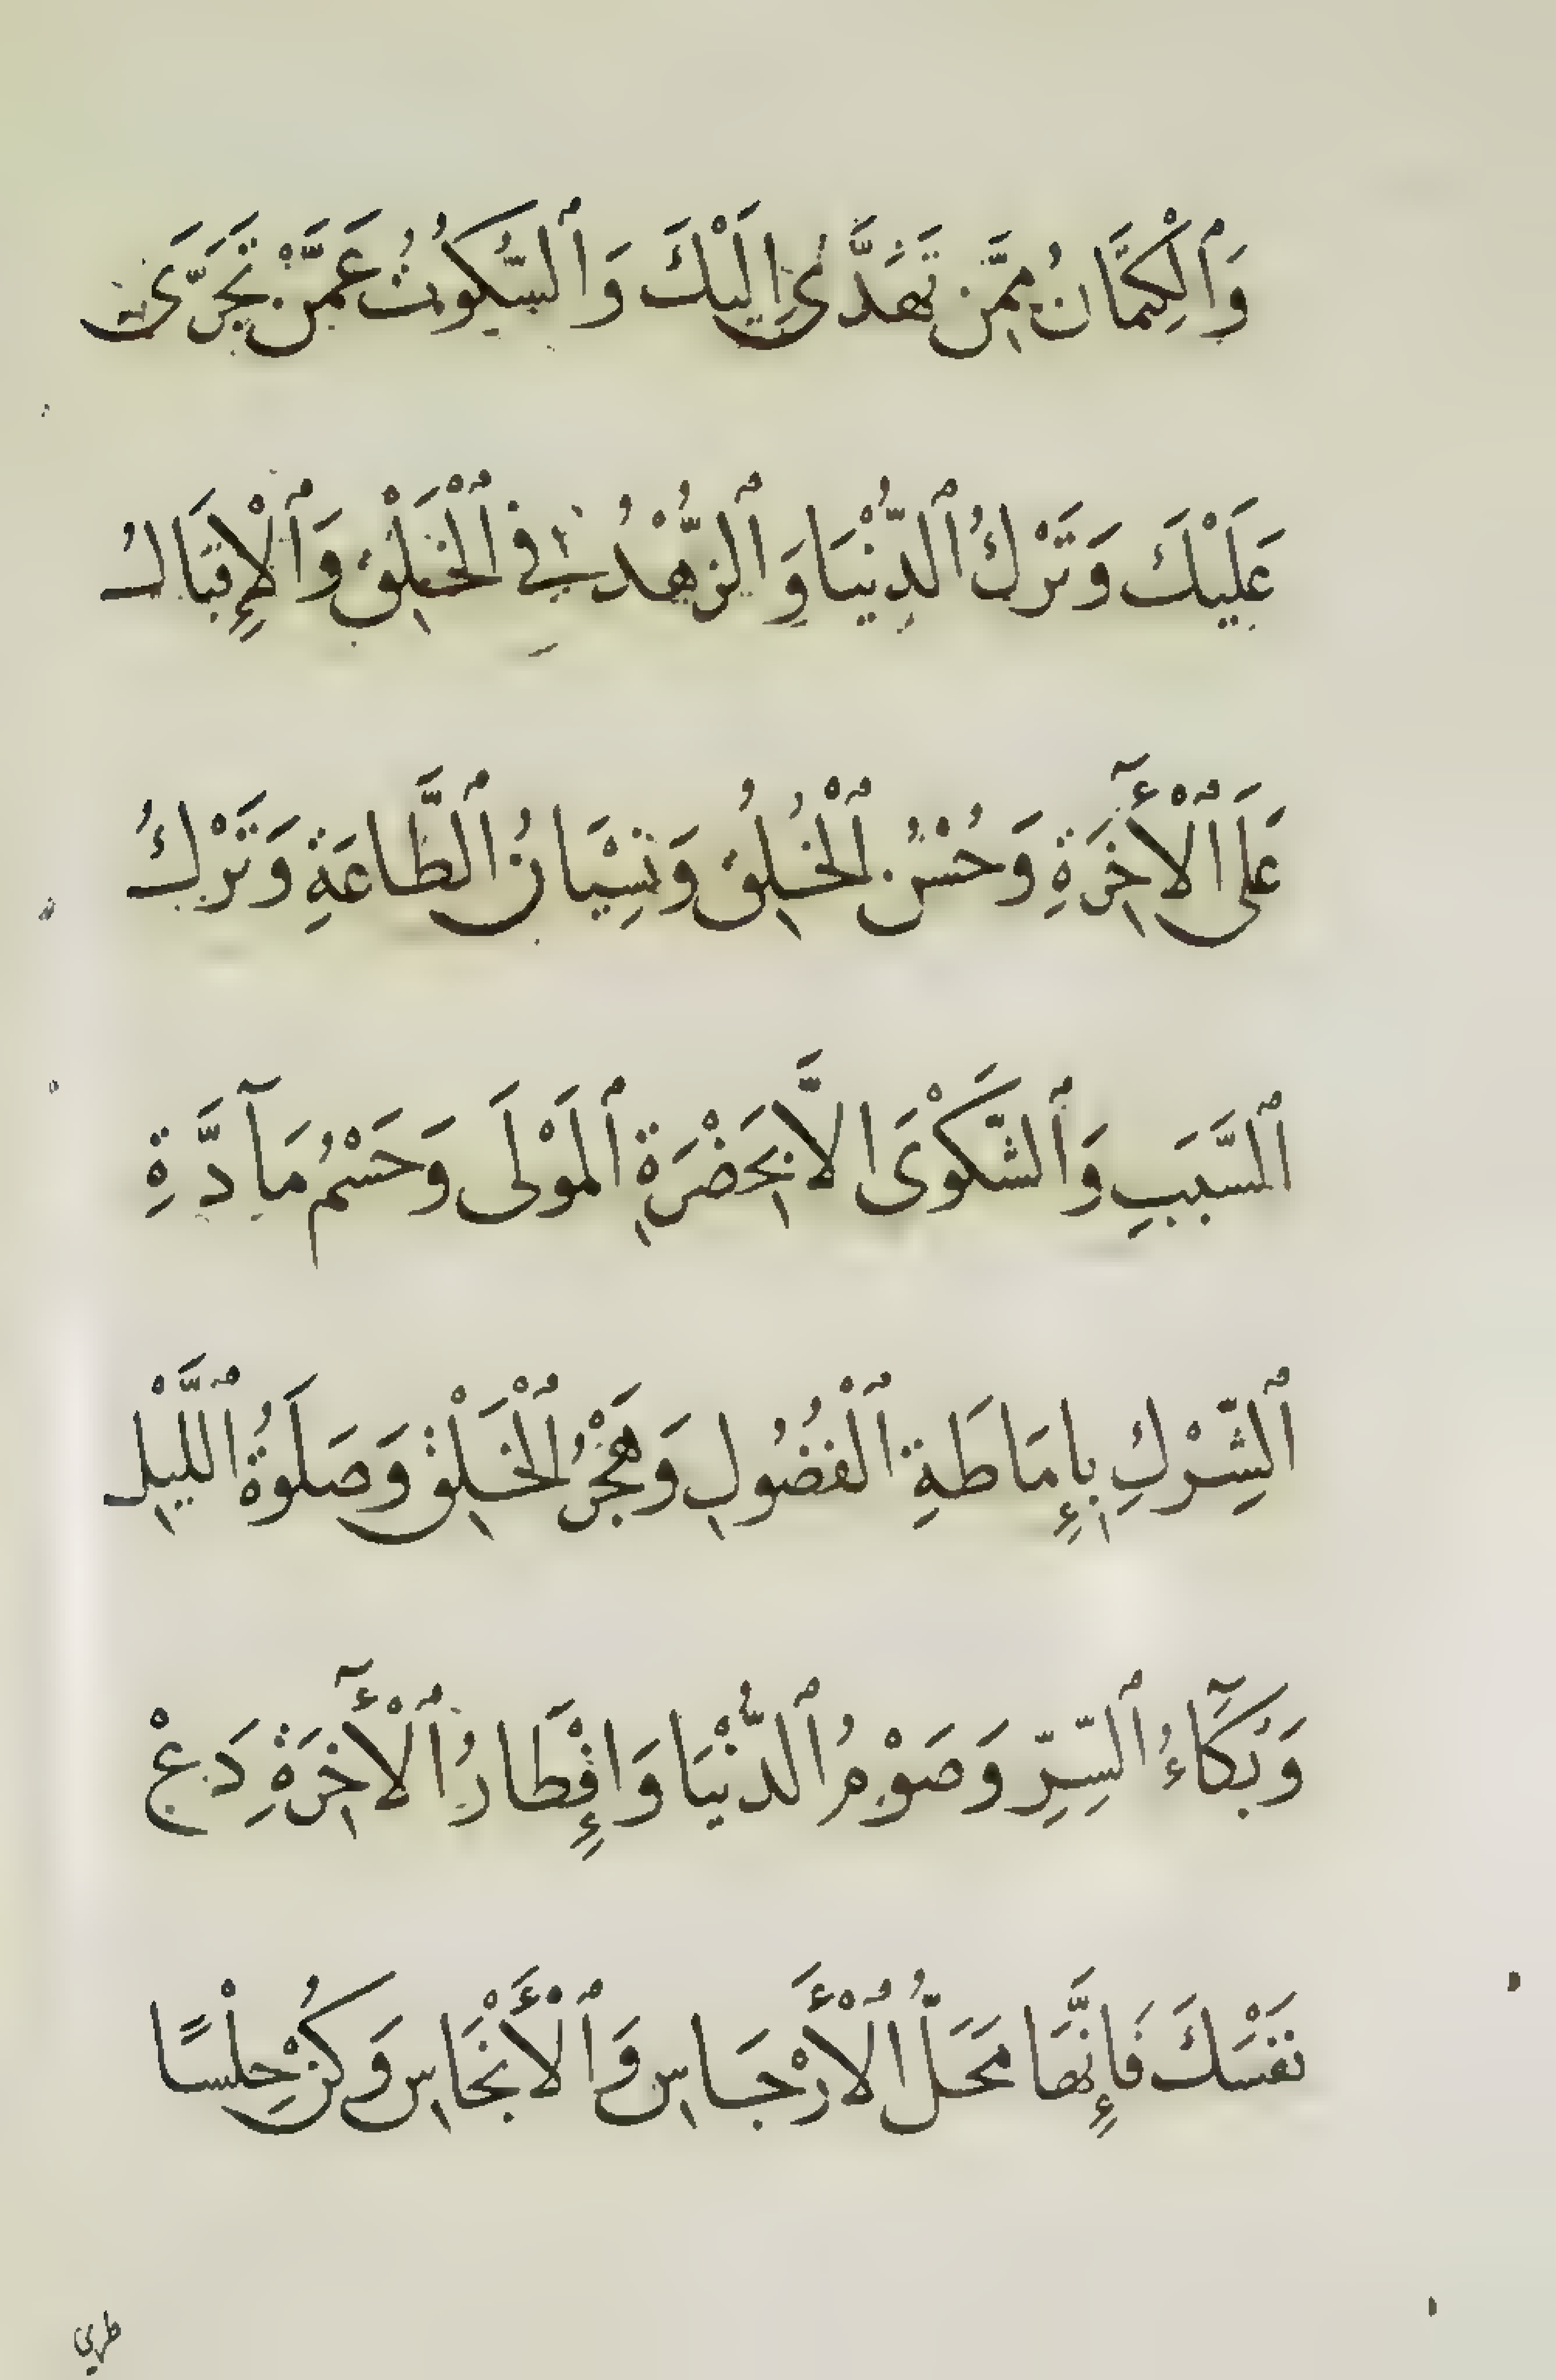 وَٱلْكِتْمَانُ مِمَّنْ تَهَدَّىٰ إِلَيْكَ وَٱلسُّكُوتُ عَمَّنْ تَجَرَّىٰ
عَلَيْكَ وَتَرْكُ ٱلدُّنْيَا وَٱلزُّهْدُ فِي ٱلْخَلْقِ وَٱلْإِقْبَالُ
عَلَى ٱلْأٓخِرَةِ وَحُسْنُ ٱلْخُلُقِ وَنِسْيَانُ ٱلطَّاعَةِ وَتَرْكُ
ٱلسَّبَبِ وَٱلشَّكْوَى إِلَّا بِحَضْرَةِ ٱلْمَوْلَى وَحَسْمُ مَآدَّةِ
ٱلشِّرْكِ بِإِمَاطَةِ ٱلْفُضُولِ وَهَجْرُ ٱلْخَلْقِ وَصَلَوةُ ٱللَّيْلِ
وَبُكَآءُ ٱلسِّرِّ وَصَوْمُ ٱلدُّنْيَا وَإِفْطَارُ ٱلْأٓخِرَةِ دَعْ
نَفْسَكَ فَإِنَّهَا مَحَلُّ ٱلْأَرْجَاسِ وَٱلْأَنْجَاسِ وَكُنْ حِلْسًا